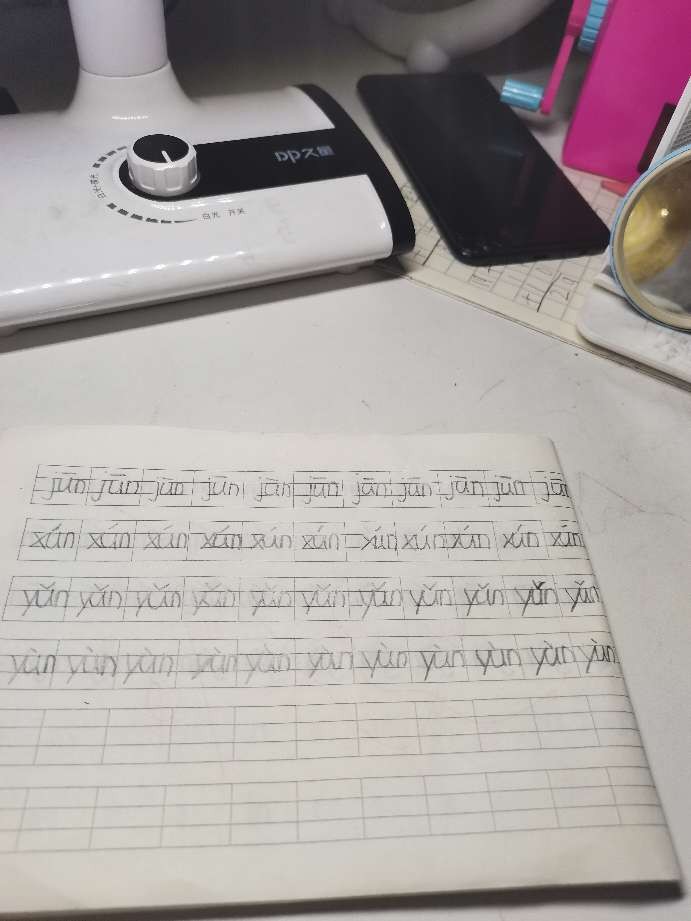 DP久量
白光 开关
jūn jūn jūn jūn jūn jūn jūn jūn jūn jūn jūn
xún xún xún xún xún xún xún xún xún xún xún
yǔn yǔn yǔn yǔn yǔn yǔn yǔn yǔn yǔn yǔn yǔn
yùn yùn yùn yùn yùn yùn yùn yùn yùn yùn yùn